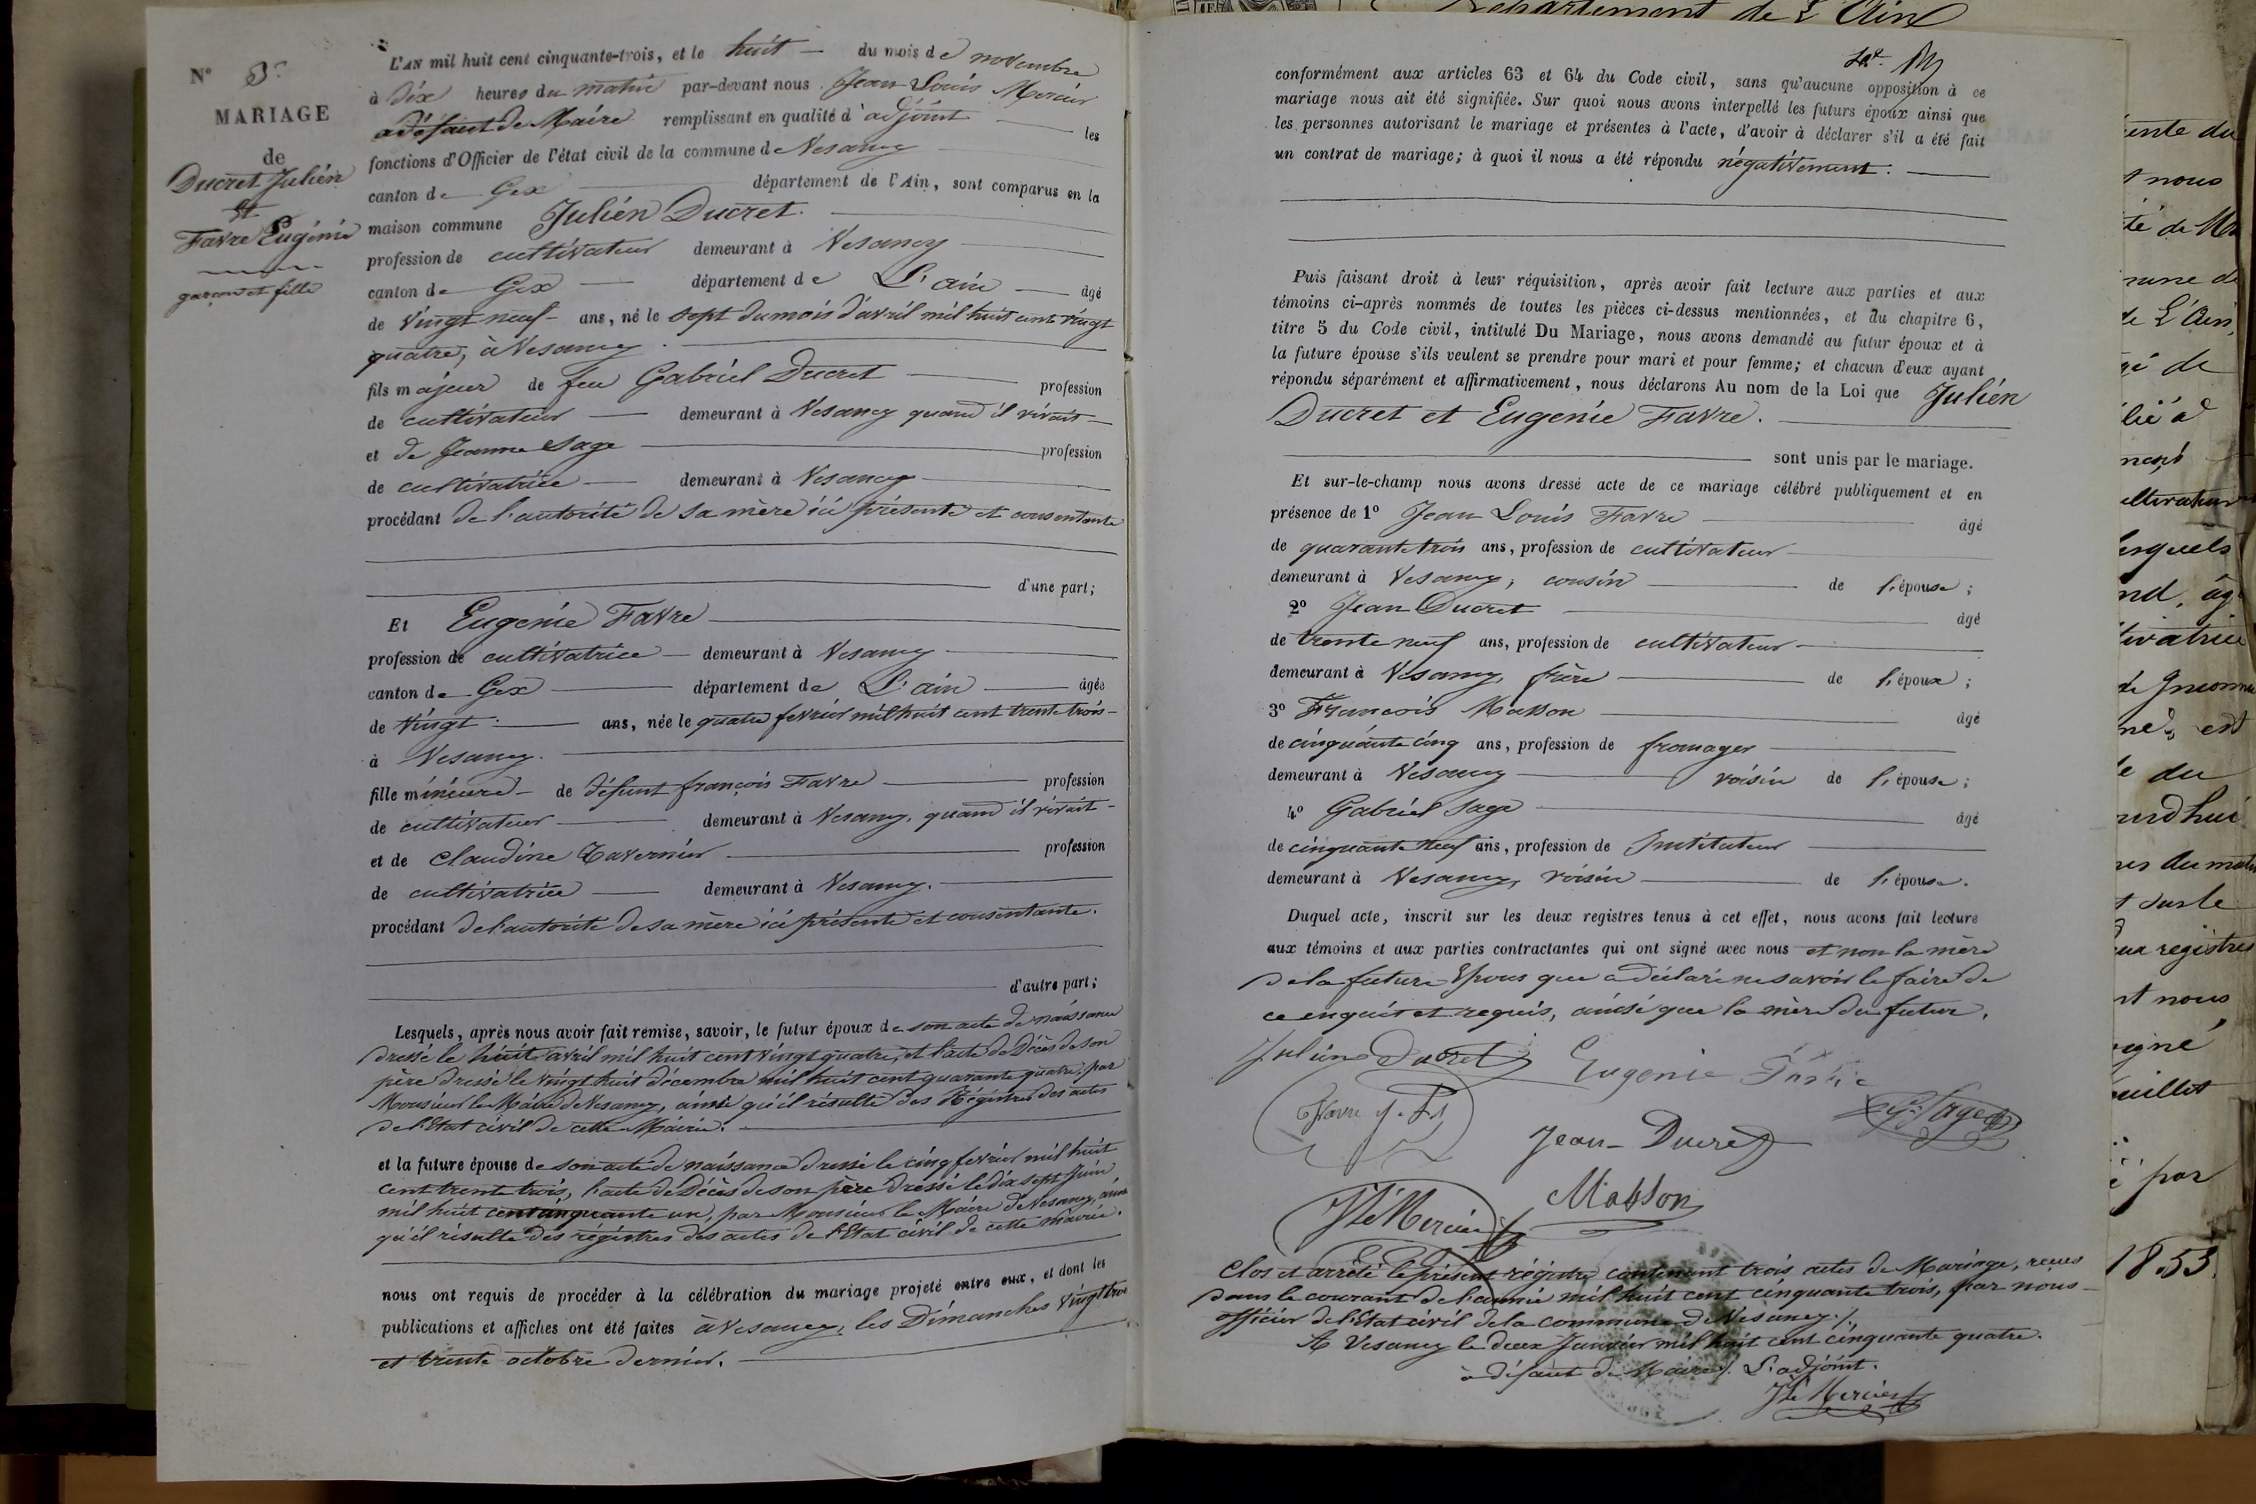 N° 3e
MARIAGE
de
Ducret Julién
et
Favre Eugénie
garçon et fille
L'AN mil huit cent cinquante-trois, et le huit du mois de novembre
à dix heures du matin par-devant nous Jean Louis Mercier
a défaut de Maire remplissant en qualité d'adjoint les
fonctions d'Officier de l'état civil de la commune de Vesancy
canton de Gex département de l'Ain, sont comparus en la
maison commune Julién Ducret.
profession de cultivateur demeurant à Vesancy
canton de Gex département de L'ain âgé
de vingt neuf ans, né le sept du mois d'avril mil huit cent vingt
quatre, à Vesancy.
fils majeur de feu Gabriel Ducret profession
de cultivateur demeurant à Vesancy quand il vivait
et de Jeanne Sage profession
de cultivatrice demeurant à Vesancy
procédant de l'autorité de sa mère ici présente et consentante
d'une part;
Et Eugenie Favre
profession de cultivatrice demeurant à Vesancy
canton de Gex département de L'ain âgée
de vingt ans, née le quatre fevrier mil huit cent trente trois
à Vesancy.
fille mineure de défunt françois Favre profession
de cultivateur demeurant à Vesancy, quand il vivait
et de Claudine Tavernier profession
de cultivatrice demeurant à Vesancy.
procédant de l'autorité de sa mère ici présente et consentante.
d'autre part;
Lesquels, après nous avoir fait remise, savoir, le futur époux de son acte de naissance
dressé le huit avril mil huit cent vingt quatre, et l'acte de Décès de son
père dressé le vingt huit décembre mil huit cent quarante quatre, par
Monsieur le Maire de Vesancy, ainsi qu'il résulte des Régistres des actes
de l'Etat civil de cette Mairie.
et la future épouse de son acte de naissance dressé le cinq fevrier mil huit
cent trente trois, l'acte de Décès de son père dressé le dix sept Juin
mil huit cent cinquante un, par Monsieur le Maire de Vesancy, ainsi
qu'il résulte des régistres des actes de l'Etat civil de cette mairie.
nous ont requis de procéder à la célébration du mariage projeté entre eux, et dont les
publications et affiches ont été faites à Vesancy, les Dimanches vingt trois
et trente octobre dernier.
Département de L'Ain
conformément aux articles 63 et 64 du Code civil, sans qu'aucune opposition à ce
mariage nous ait été signifiée. Sur quoi nous avons interpellé les futurs époux ainsi que
les personnes autorisant le mariage et présentes à l'acte, d'avoir à déclarer s'il a été fait
un contrat de mariage; à quoi il nous a été répondu négativement.
Puis faisant droit à leur réquisition, après avoir fait lecture aux parties et aux
témoins ci-après nommés de toutes les pièces ci-dessus mentionnées, et du chapitre 6,
titre 5 du Code civil, intitulé Du Mariage, nous avons demandé au futur époux et à
la future épouse s'ils veulent se prendre pour mari et pour femme; et chacun d'eux ayant
répondu séparément et affirmativement, nous déclarons Au nom de la Loi que Julién
Ducret et Eugenie Favre.
sont unis par le mariage.
Et sur-le-champ nous avons dressé acte de ce mariage célébré publiquement et en
présence de 1° Jean Louis Favre âgé
de quarante trois ans, profession de cultivateur
demeurant à Vesancy, cousin de l'épouse;
2° Jean Ducret âgé
de trente neuf ans, profession de cultivateur
demeurant à Vesancy, frère de l'époux;
3° François Masson âgé
de cinquante cinq ans, profession de fromager
demeurant à Vesancy voisin de l'épouse;
4° Gabriel Sage âgé
de cinquante neuf ans, profession de Instituteur
demeurant à Vesancy, voisin de l'épouse.
Duquel acte, inscrit sur les deux registres tenus à cet effet, nous avons fait lecture
aux témoins et aux parties contractantes qui ont signé avec nous et non la mère
de la future Epous que a déclaré ne savoir le faire de
ce enquit et requis, ainsi que la mère du futur.
Julien Ducret Eugenie Favre
Favre J. Ls Jean Ducret G. Sage
JLs Mercier Masson
Clos et arrêté le présent régistre contenant trois actes de Mariage, reçus
dans le courant de l'année mil huit cent cinquante trois, par nous
officier de l'Etat civil de la commune de Vesancy.
A Vesancy le deux Janvier mil huit cent cinquante quatre.
à défaut de Maire. L'adjoint.
JLs Mercier
1853.